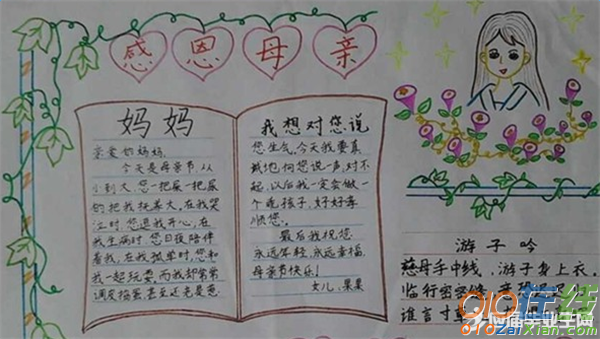 感恩母亲
妈妈
亲爱的妈妈,
今天是母亲节,从
小到大,您一把屎一把尿
的把我抚养大,在我哭
泣时,您逗我开心,在
我生病时,您日夜陪伴
着我,在我孤单时,您和
我一起玩耍,而我却常常
调皮捣蛋,甚至还老是惹
我想对您说
您生气,今天我要真
诚地向您说一声:对不
起,以后我一定会做一
个乖孩子,好好孝
顺您。
最后我祝您
永远年轻,永远幸福,
母亲节快乐!
女儿:果果
游子吟
慈母手中线,游子身上衣。
临行密密缝,意恐
谁言寸草
910在线
910zaiXian.com